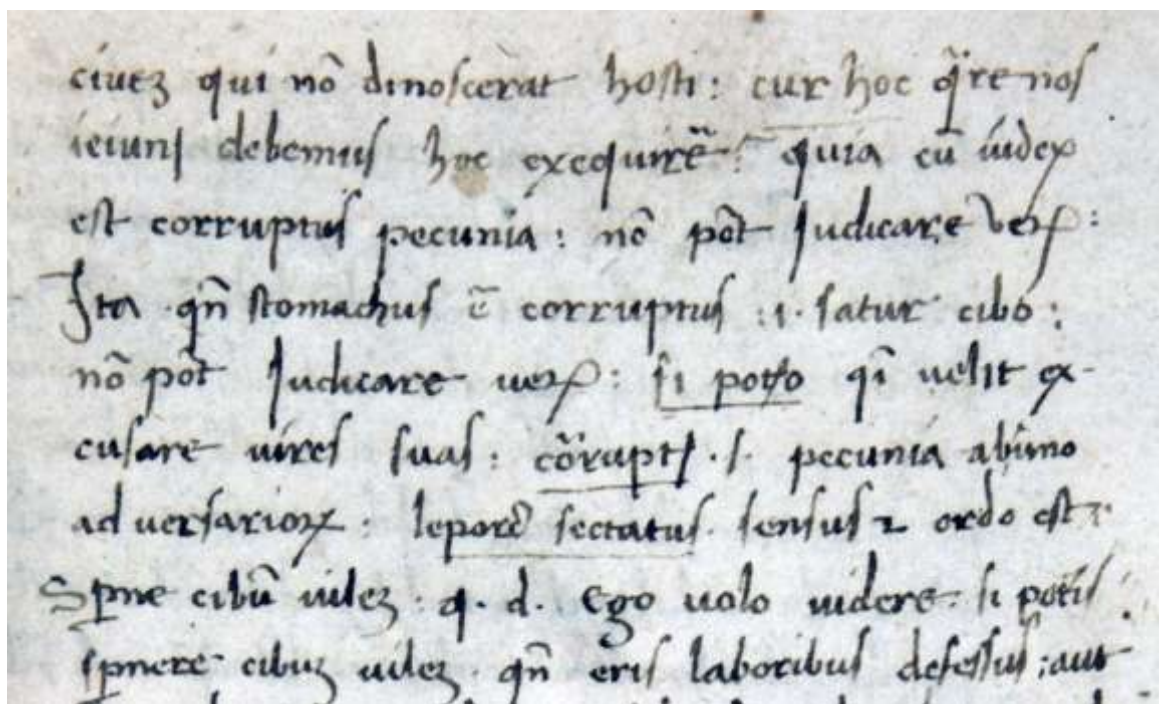 ciueꝫ qui nō dinoscerat hosti : cur hoc q̄re nos
ieiunj debemus hoc exequirē : quia cū iudex
est corruptus pecunia : nō pōt Judicare veꝝ :
Ita qn̄ stomachus ē corruptus : i. satur cibo :
nō pōt Judicare ueꝝ : si poto qī uelit ex-
cusare uires suas : cōrupt9 .s. pecunia ab uno
aduersarioꝝ : leporē sectatus. sensus ⁊ ordo est
Sꝑne cibū uileꝫ . q. d. Ego uolo uidere si potis
sꝑnere cibuꝫ uileꝫ . qn̄ eris laboribus defessus : aut